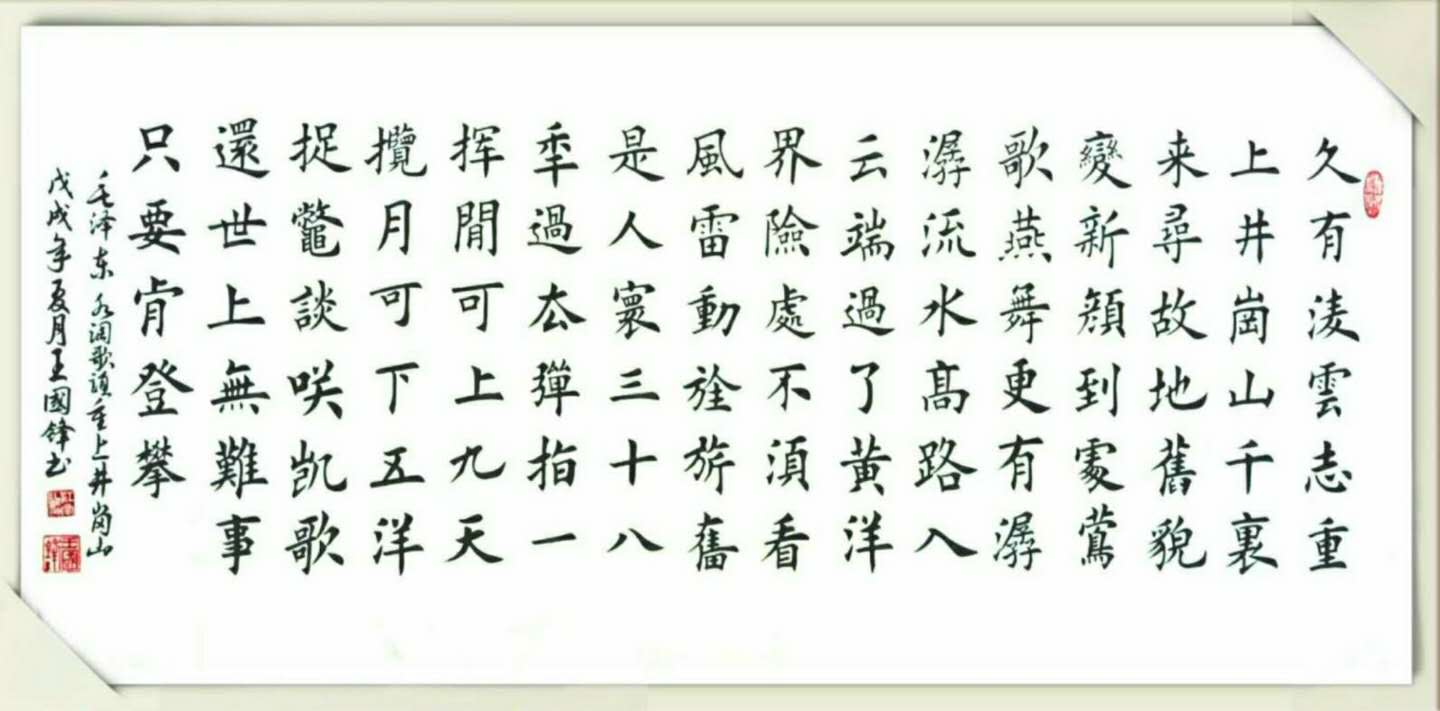 久有淩雲志重
上井崗山千裏
来尋故地舊貌
變新顔到處鶯
歌燕舞更有潺
潺流水髙路入
云端過了黄洋
界險處不湏看
風雷動旌旂奮
是人寰三十八
秊過厺彈指一
挥閒可上九天
攬月可下五洋
捉鼈談咲凯歌
還世上無難事
只要肯登攀
毛泽东水调歌頭重上井崗山
戊戌年夏月王國锋书